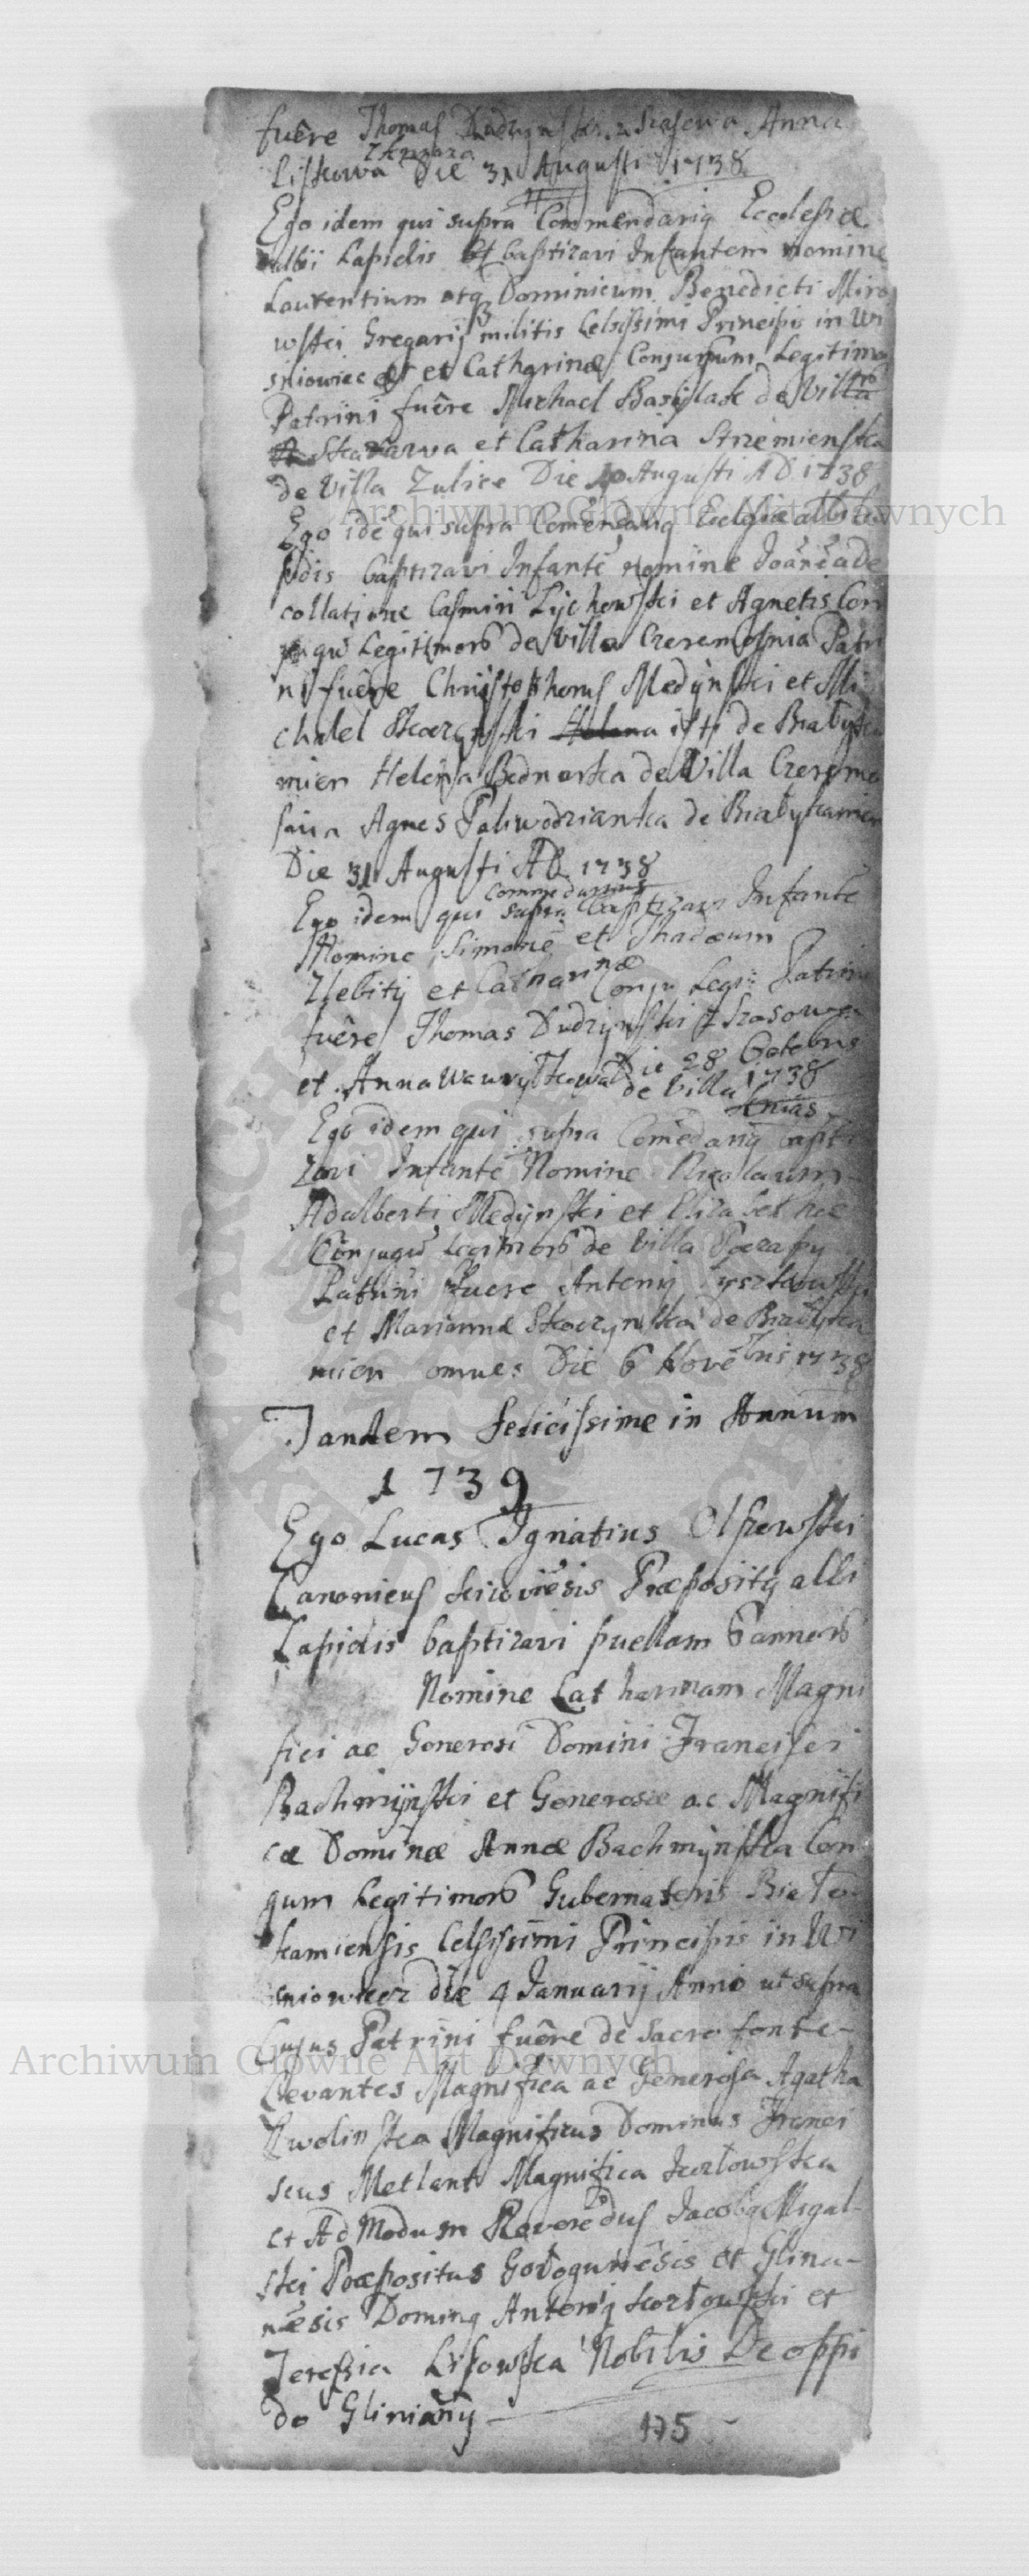 fuêre Thomas Anna
Die 31 Augusti 1738
Ego idem qui supra Commendariq Ecclesiæ
Albij Lapidis baptizavi Infantem nomine
Laurentium atq Dominicum Benedicti Miro
wski Gregarij militis Celsissimi Principis in Wi
sniowiec et Catharinæ Conjugum Legitimo
Patrini fuêre Michael Basylak de Villa
et Catharina Strzemienska
de Villa Zulice Die 10 Augusti AD 1738
Ego idē qui supra Comēdariq Ecclesiæ albi La
pidis baptizavi Infantē nomine Joānē a de
collatione Casimiri Lychowski et Agnetis Con
jugū Legitimorō de Villa Czeremosnia Patri
ni fuêre Christophorus Medÿnski et Mi
chael Skoczynski isti de Białyka
mien Helena Bednarka de Villa Czeremo
snia Agnes Paliwodzianka de Białykamien
Die 31 Augusti AD 1738
Commedarius
Ego idem qui supra baptizavi Infantē
Nomine Simonē et Thadæum
et Catharinæ Conju Legi: Patrini
fuêre Thomas Dudzynski z Sasowa
et Anna Die 28 Octobris
de Villa 1738
Ego idem qui supra Comēdariq bapti
zavi Infantē Nomine Nicolaum
Adalberti Medÿnski et Elizabethæ
Conjugū Legitimorō de Villa Poczapy
Patrini fuere Antonij
et Marianna Skoczynska de Białyka
mien omnes Die 6 Novēbris 1738
Tandem felicissime in Annum
1739
Ego Lucas Ignatius Olszewski
Canonicus kijoviēsis Præpositq albi
Lapidis baptizavi puellam 6 annorō
Nomine Catharinam Magni
fici ac Generosi Domini Francisci
Bachmÿnski et Generosæ ac Magnifi
cæ Dominæ Annæ Bachmÿnska Con
gum Legitimorō Gubernatoris Biało
kamiensis Celsissimi Principis in Wi
sniowiecz die 4 Januarij Anno ut supra
Cujus Patrini fuêre de sacro fonte-
Levantes Magnifica ac Generosa Agatha
Kwolinska Magnificus Dominus Franci
scus Metlant Magnifica kozłowska
et Ad Modum Reverēdus Jacobq Migal-
ski Præpositus Gołoguriēsis et Glinia-
nēsis Dominq Antoniq kozłowski et
Teressia Lisowska Nobilis De oppi
do Gliniany
175
Archiwum Główne Akt Dawnych
Archiwum Główne Akt Dawnych